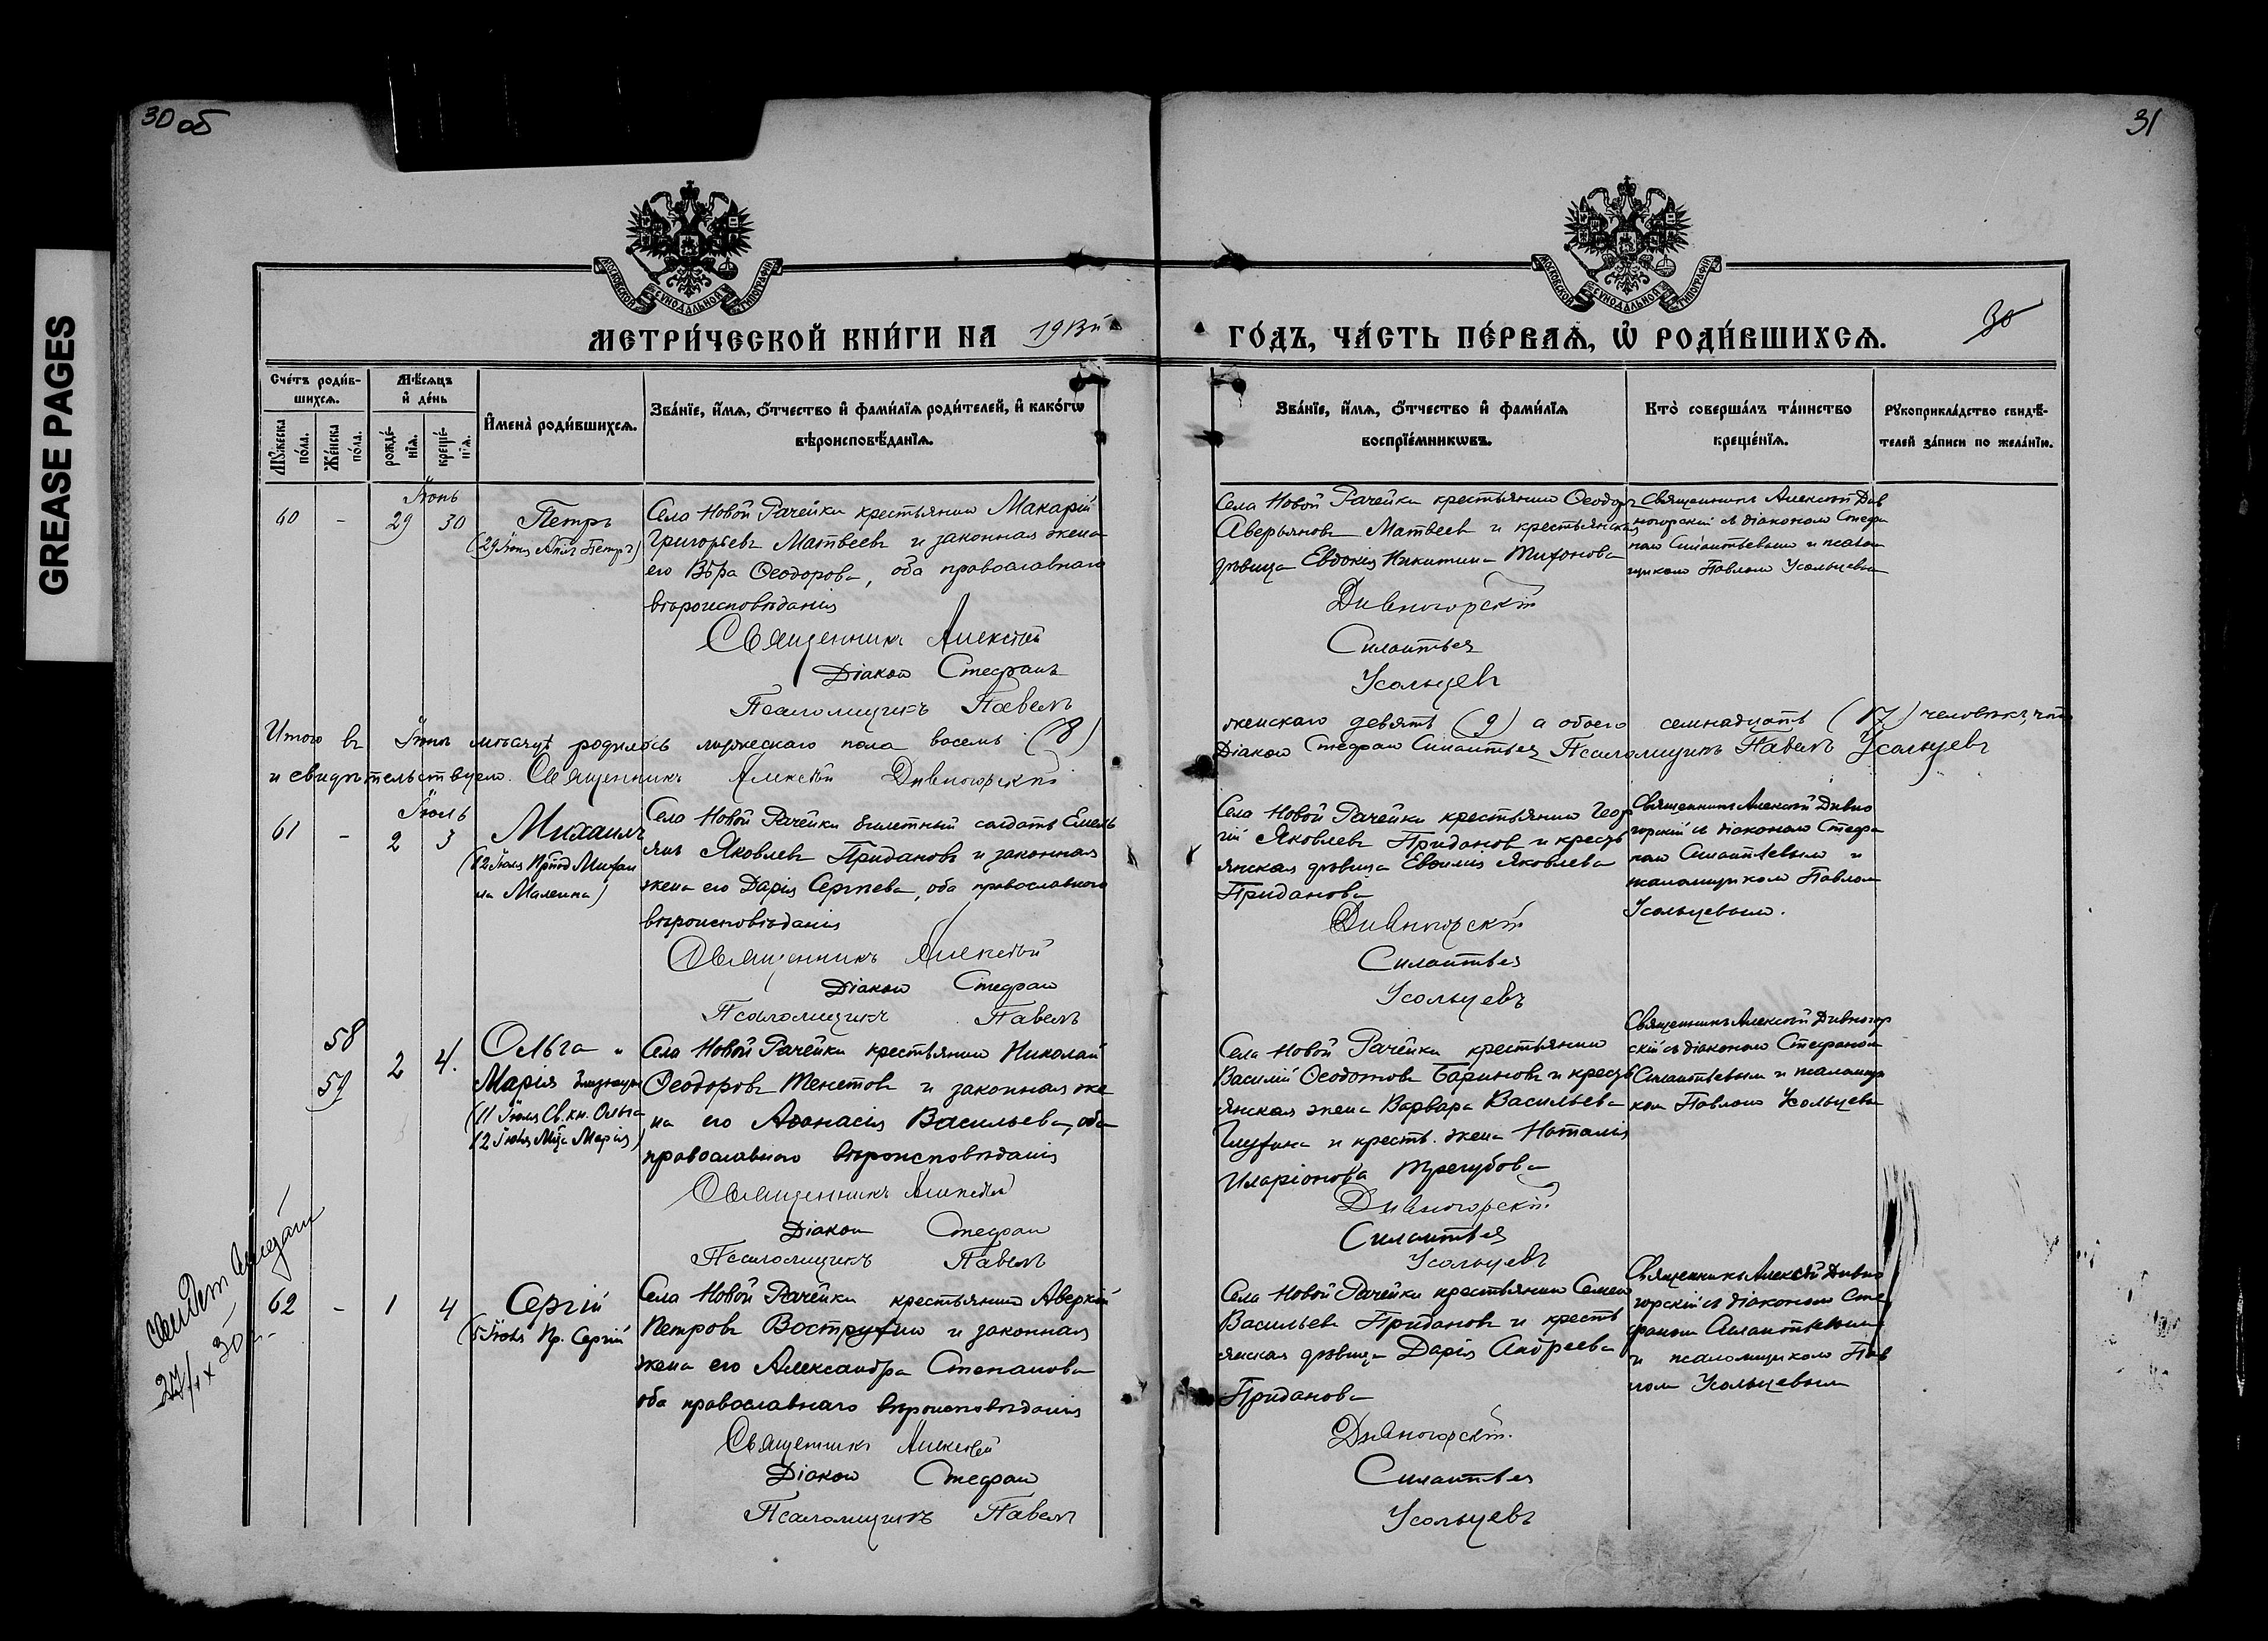 GREASE PAGES
30 об
31
МОСКОВСКОЙ СѴНОДАЛЬНОЙ ТИПОГРАФІИ
МОСКОВСКОЙ СѴНОДАЛЬНОЙ ТИПОГРАФІИ
МЕТРИ́ЧЕСКОЙ КНИ́ГИ НА 1913й
ГО́ДЪ, ЧА́СТЬ ПЕ́РВАѦ, Ѡ҆ РОДИ́ВШИХСѦ.
30
Сче́тъ роди́в-
шихсѧ.
Мꙋ́жеска по́ла.
Же́нска по́ла.
Мѣ́сѧцъ
и҆ де́нь
рожде́-
нїѧ.
креще́-
нїѧ.
И҆мена̀ роди́вшихсѧ.
Зва́нїе, и҆́мѧ, ѻ҆́тчество и҆ фами́лїѧ роди́телей, и҆ како́гѡ
вѣроисповѣ́данїѧ.
Зва́нїе, и҆́мѧ, ѻ҆́тчество и҆ фами́лїѧ
воспрїе́мникѡвъ.
Кто̀ соверша́лъ та́инство
креще́нїѧ.
Рꙋкоприкла́дство свидѣ́-
телей за́писи по жела́нїю.
Іюнь
60 - 29 30
Петръ
(29 Іюня Апл Петръ)
Села Новой Рачейки крестьянин Макарій
Григорьевъ Матвеевъ и законная жена
его Вѣра Ѳеодорова, оба православнаго
вѣроисповѣданія
Священникъ Алексѣй
Діакон Стефанъ
Псаломщикъ Павелъ
Села Новой Рачейки крестьянин Ѳеодоръ
Аверьяновъ Матвеев и крестьянская
дѣвица Евдокія Никитина Тихонова
Дивногорскій
Силантьев
Усольцевъ
Священникъ Алексѣй Див
ногорскій съ діаконом Стефа
ном Силантьевым и псалом
щиком Павлом Усольцевым
Итого въ Іюнѣ мѣсяцѣ родилось мужескаго пола восемь (8)
женскаго девять (9) а обоего семнадцать (17) человѣкъ, что
и свидѣтельствуем. Священникъ Алексѣй Дивногорскій
Діакон Стефан Силантьев Псаломщикъ Павелъ Усольцевъ
Іюль
61 - 2 3
Михаилъ
(12 Іюля Прпод Михаи
ла Малеина)
Села Новой Рачейки билетный солдатъ Емель
янъ Яковлевъ Придановъ и законная
жена его Дарія Сергѣева, оба православнаго
вѣроисповѣданія
Священникъ Алексѣй
Діакон Стефан
Псаломщикъ Павелъ
Села Новой Рачейки крестьянин Геор
гій Яковлевъ Приданов и кресть
янская дѣвица Евѳимія Яковлева
Приданова
Дивногорскій
Силантьев
Усольцевъ
Священникъ Алексѣй Дивно
горскій съ діаконом Стефа
ном Силантьевым и
псаломщиком Павлом
Усольцевым.
58
59
2 4.
Ольга и
Марія близнецы
(11 Іюля Св. кн. Ольга
12 Іюля Мца Марія)
Села Новой Рачейки крестьянин Николай
Ѳеодоровъ Тенетовъ и законная же
на его Аѳанасія Васильева, оба
православнаго вѣроисповѣданія
Священникъ Алексѣй
Діакон Стефан
Псаломщикъ Павелъ
Села Новой Рачейки крестьянин
Василій Ѳеодотовъ Бариновъ и кресть
янская жена Варвара Васильева
Глухова и кресть. жена Наталія
Иларіонова Трегубова
Дивногорскій.
Силантьев
Усольцевъ
Священникъ Алексѣй Дивногор
скій съ діаконом Стефаном
Силантьевым и псаломщи
ком Павлом Усольцевым
27/IX 30 г.
62 - 1 4
Сергій
(5 Іюля Пр. Сергій
Села Новой Рачейки крестьянин Аверкій
Петровъ Вострухин и законная
жена его Александра Степанова
оба православнаго вѣроисповѣданія
Священникъ Алексѣй
Діакон Стефан
Псаломщикъ Павелъ
Села Новой Рачейки крестьянин Семен
Васильевъ Приданов и кресть
янская дѣвица Дарія Андреева
Приданова
Дивногорскій.
Силантьев
Усольцевъ
Священникъ Алексѣй Дивно
горскій съ діаконом Сте
фаном Силантьевым
и псаломщиком Пав
лом Усольцевым